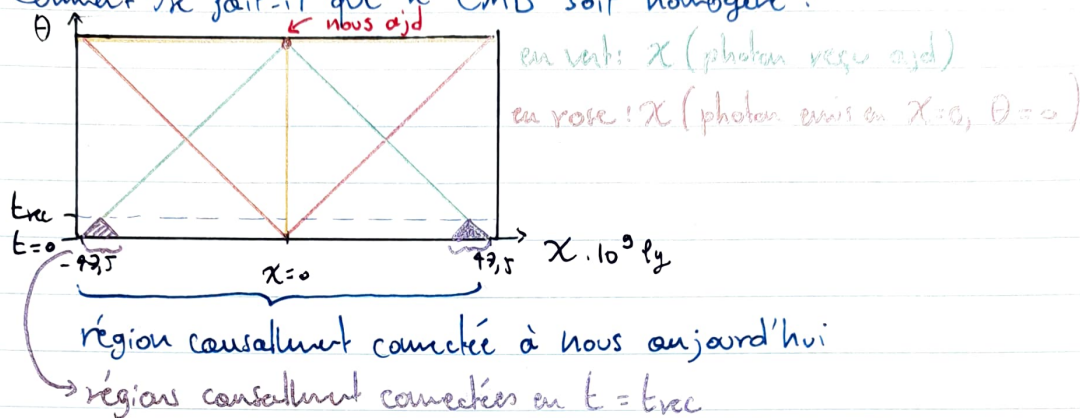 Comment se fait-il que le CMB soit homogène ?
θ
nous ajd
en vert : χ (photon reçu ajd)
en rose : χ (photon émis en χ=0, θ=0)
trec
t=0
-47,5
χ=0
47,5
χ.10⁹ ly
région causallement connectée à nous aujourd'hui
régions causallement connectées en t = trec